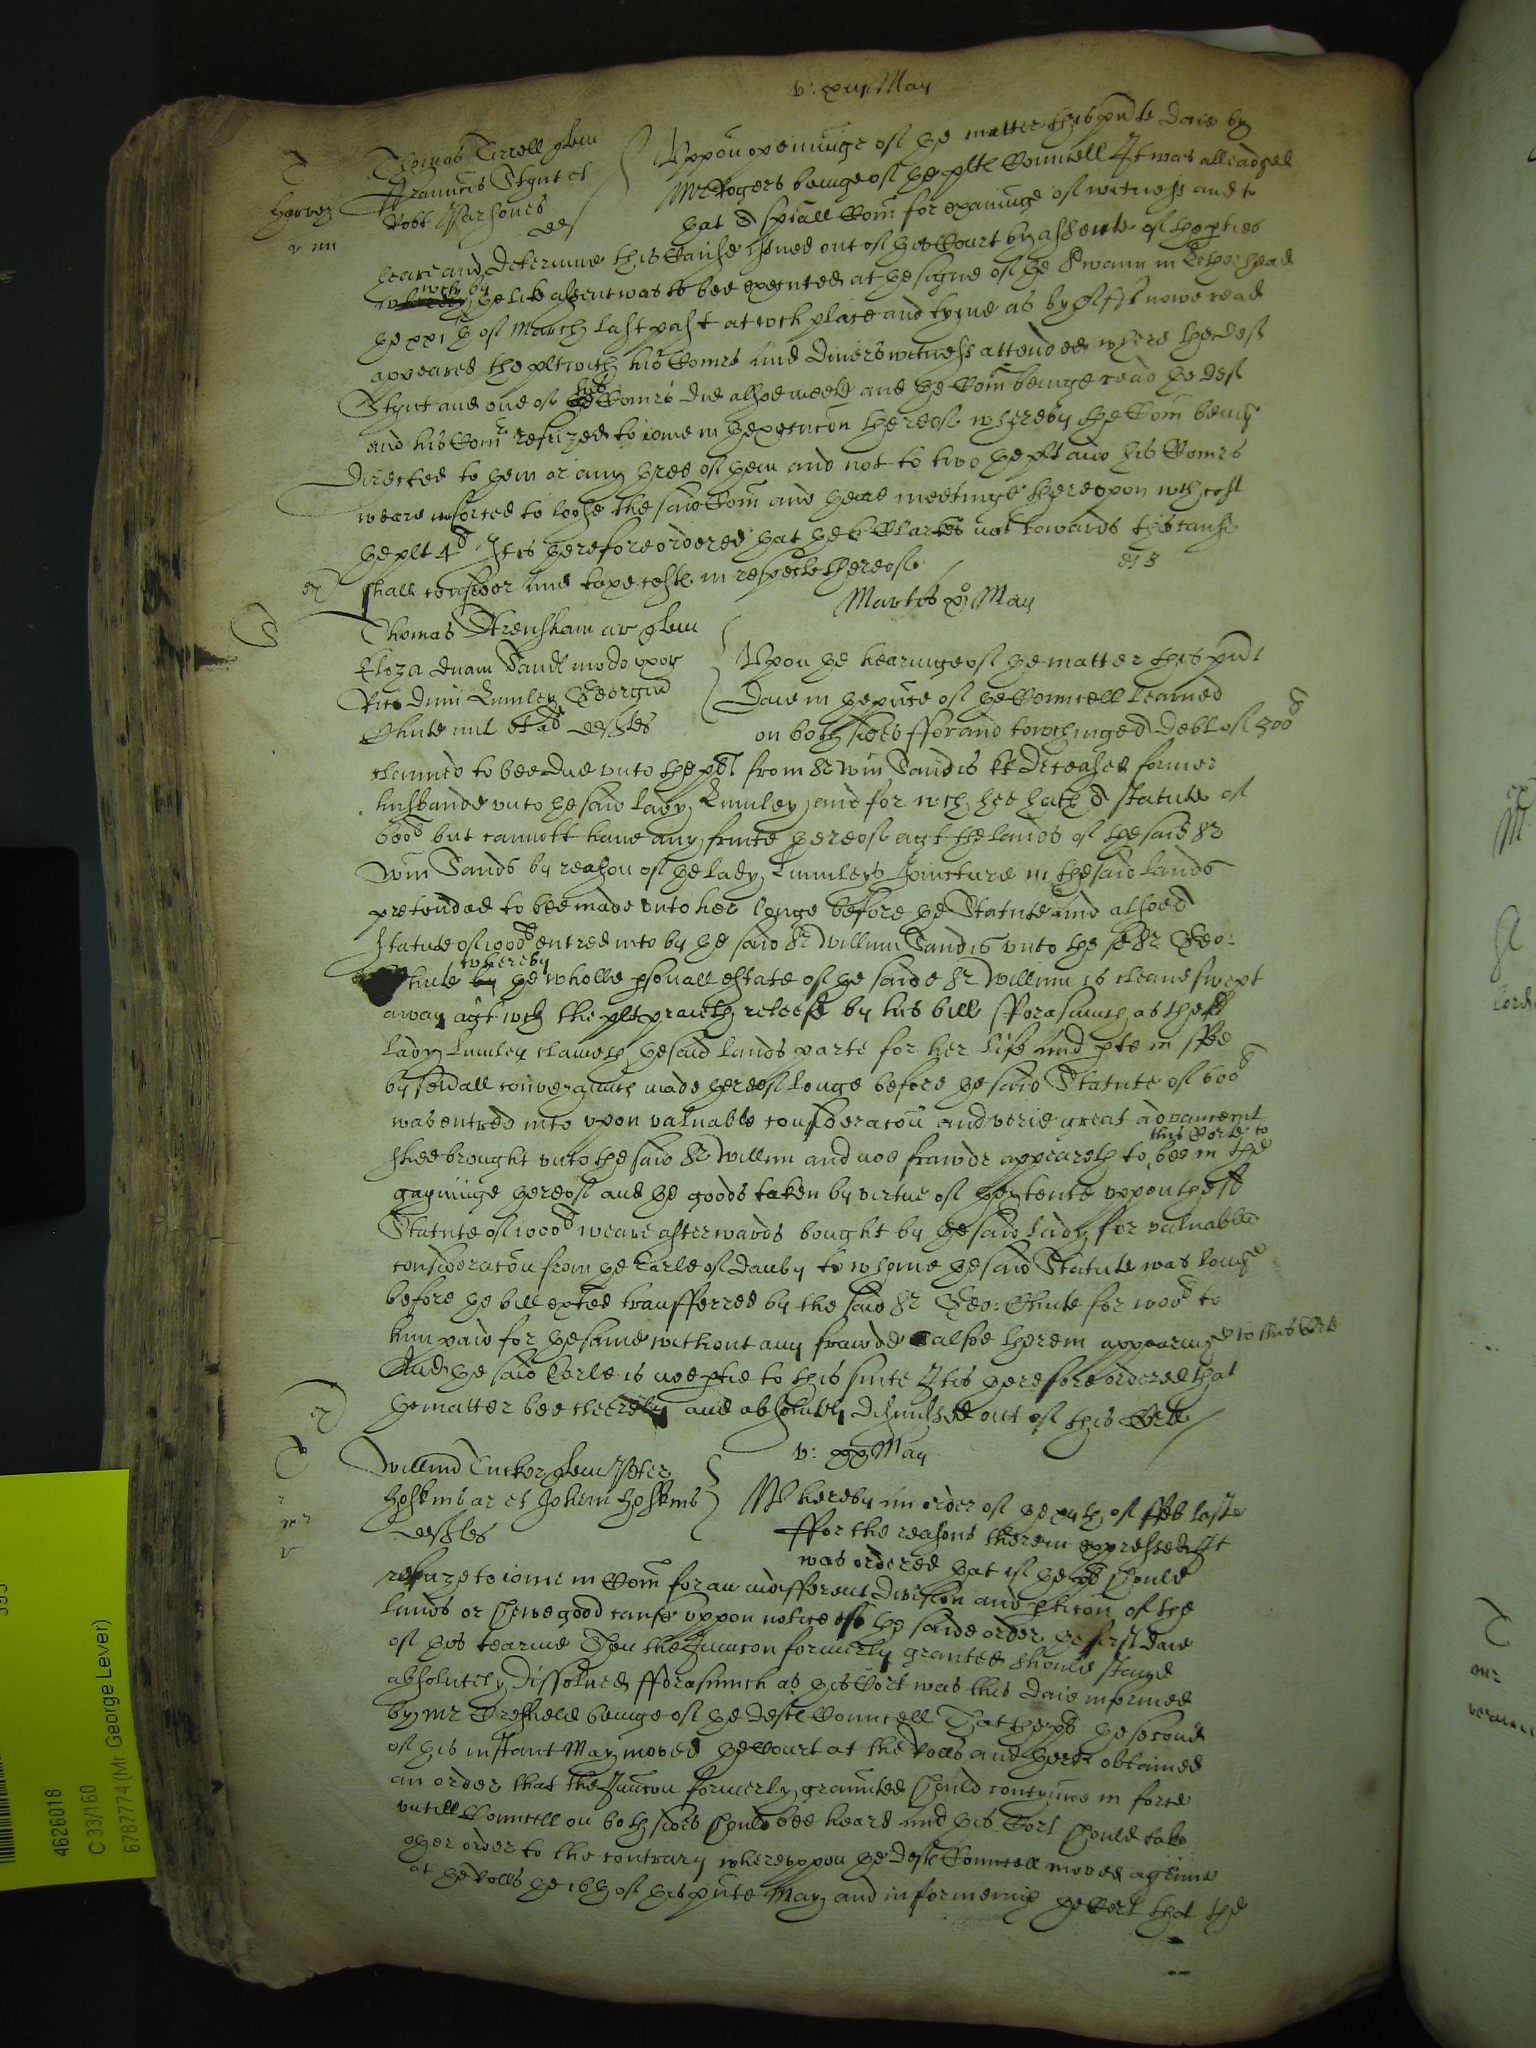 v: xviij May
T
Harvey
v iiii
Thomas Tirrell quer
Frauncis Stynt et
Robt Parsones
def
Uppon openinge of ye matter this pnte daie by
Mr Rogers beinge of ye plts Councell It was alleadged
yat a speciall Com for exaninge of witness and to
heare and determine this Cause issued out of this Court by assente of the pties
wch by ye like assent was to bee executed at ye signe of ye Swann in Letherhead
ye xxi th of March last past at wch place and tyme as by Afft nowe read
appeared the plt with his Comrs and divers witness attended where the deft
Stynt and one of his Comrs did alsoe meete and ye Com beinge read ye deft
and his Comr refuzed to ioine in ye execucon thereof whereby the Com beinge
directed to yem or any three of yem and not to two ye plt and his Comrs
weare inforced to loose the said Com and yeare meetinge thereupon wch cost
ye plt It is yerefore ordered yat ye 6 Clarkes not towards this cause
shall consider and taxe costs in respecte thereof
Martis May
Thomas Trensham ar quer
Eliza dnam Sands modo uxor
Rici Dmi Lumley Georgiu
Chute mil et al deftes
Upon ye hearinge of ye matter this pnte
daie in ye pnce of ye Councell learned
on both sides ffor and towchinge a debt of 300 l
claimed to bee due unto the plt from Sr Wm Sandis kt deceased former
husbande unto ye said Lady Lumley and for wch hee hath a statute of
600 l but cannott have any fruite yereof agt the lands of the said Sr
Wm Sands by reason of ye lady Lumleys Joincture in the said lands
pretended to bee made unto her longe before ye Statute and alsoe a
Statute of 1000 l entred into by ye said Sr Willm Sandis unto the sd Sr Geo:
Chute whereby ye wholle psonall estate of ye saide Sr Willm is cleane swept
away agt wch the plt prayeth releefe by his bill Fforasmuch as the sd
Lady Lumley claimeth ye said lands parte for her life and pte in ffee
by severall conveyances made yereof longe before ye said Statute of 600 l
was entred into upon valuable consideracon and verie great advancemt
shee brought unto the said Sr Willm and noe frawde appeareth to this Corte to bee in the
gayninge yereof and ye goods taken by virtue of ye extente uppon the sd
Statute of 1000 l weare afterwards bought by ye said Lady for valuable
consideracon from ye Earle of Danby to whome ye said Statute was longe
before ye bill exted transferred by the said Sr Geo: Chute for 1000 l to
him paid for ye same without any frawde alsoe therein appearinge to this Corte
And ye said Earle is noe ptie to this suite It is yerefore ordered that
ye matter bee cleerely and absolutely dismissed out of this Corte
v: xx May
Willmu Tucker quer Peter
Hoskins ar et Johem Hoskins
deftes
Whereby an order of ye of ffeb laste
ffor the reasons therein expressed It
was ordered yat if ye plt should
refuze to ioine in Com for an indifferent division and pticon of the
lands or shewe good cause uppon notice of ye saide order ye first daie
of yis tearme Then the Iniuncon formerly granted should stand
absolutely dissolved fforasmuch as yis Cort was this daie informed
by Mr beinge of ye defts Councell That the plt ye second
of yis instant May moved ye Court at the Rolls and there obtained
an order that the Iniuncon formerly graunted should contynue in force
untill Councell on both sides should bee heard and yis Cort should take
oyer order to the contrary whereuppon ye defts Councell moved againe
at ye Rolls ye 16 th of yis pnte May and informeinge ye Cort that the
4626018
C 33/160
6787774 (Mr. George Lever)